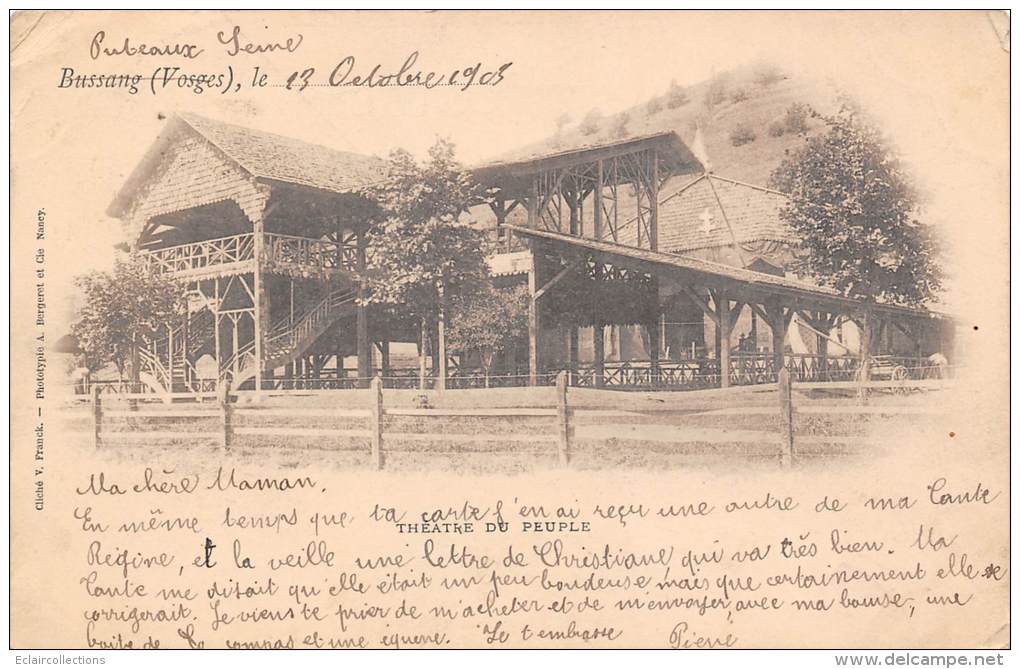 Puteaux Seine
Bussang (Vosges), le 13 Octobre 1903
Cliché V. Franck. — Phototypie A. Bergeret et Cie Nancy.
Ma chère Maman.
En même temps que ta carte j'en ai reçu une autre de ma Tante
THÉATRE DU PEUPLE
Régine, et la veille une lettre de Christiane qui va très bien. Ma
Tante me disait qu'elle était un peu boudeuse mais que certainement elle se
corrigerait. Je viens te prier de m'acheter et de m'envoyer, avec ma bourse, une
boite de compas et une équerre. Je t'embrasse Pierre
Eclaircollections
www.delcampe.net